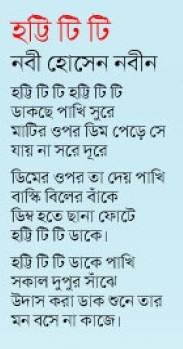 হট্টি টি টি
নবী হোসেন নবীন
হট্টি টি টি হট্টি টি টি
ডাকছে পাখি সুরে
মাটির ওপর ডিম পেড়ে সে
যায় না সরে দূরে
ডিমের ওপর তা দেয় পাখি
বাস্কি বিলের বাঁকে
ডিম্ব হতে ছানা ফোটে
হট্টি টি টি ডাকে।
হট্টি টি টি ডাকে পাখি
সকাল দুপুর সাঁঝে
উদাস করা ডাক শুনে তার
মন বসে না কাজে।